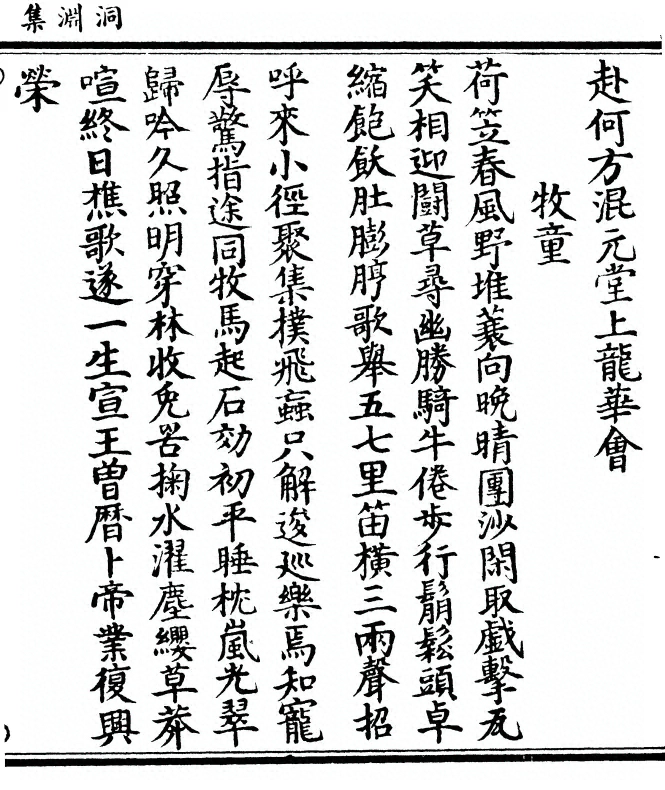 洞淵集
赴何方混元堂上龍華會
牧童
荷笠春風野堆蓑向晚晴團沙閑取戲擊瓦
笑相迎闘草尋幽勝騎牛倦步行鬅鬆頭卓
縮飽飫肚膨脝歌舉五七里笛横三兩聲招
呼來小徑聚集撲飛蝱只解逡廵樂焉知寵
辱驚指途同牧馬起石効初平睡枕嵐光翠
歸吟久照明穿林收兔罟掬水濯塵纓草莽
喧終日樵歌遂一生宣王曽曆卜帝業復興
榮